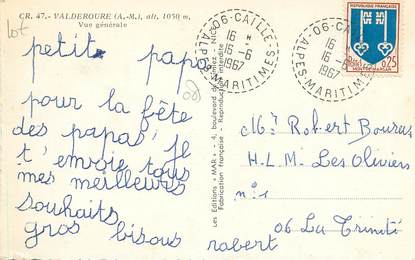 CR. 47. - VALDEROURE (A.-M.), alt. 1050 m.
Vue générale
lot
petit papa
pour la fête
des papas je
t'envoie tous
mes meilleures
souhaits
gros bisous
robert
Les Editions "MAR" - 4, boulevard de Cimiez - NICE
Fabrication Française - Reproduction interdite
06 - CAILLE
16 H
16 - 6
1967
ALPES-MARITIMES
06 - CAILLE
16 H
16 - 6
1967
ALPES-MARITIMES
REPUBLIQUE FRANÇAISE
0,25
MONT-DE-MARSAN
Mr Robert
H.L.M Les Oliviers
n° 1
06 La Trinité